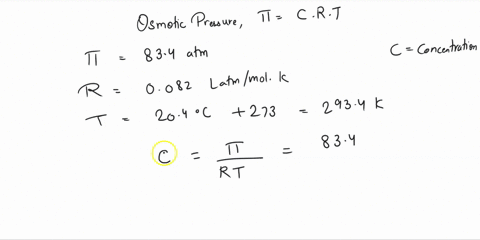 Osmotic Pressure, Π = C.R.T
Π = 83.4 atm
C = Concentration
R = 0.082 Latm/mol.k
T = 20.4°C + 273 = 293.4 K
C = Π / RT = 83.4